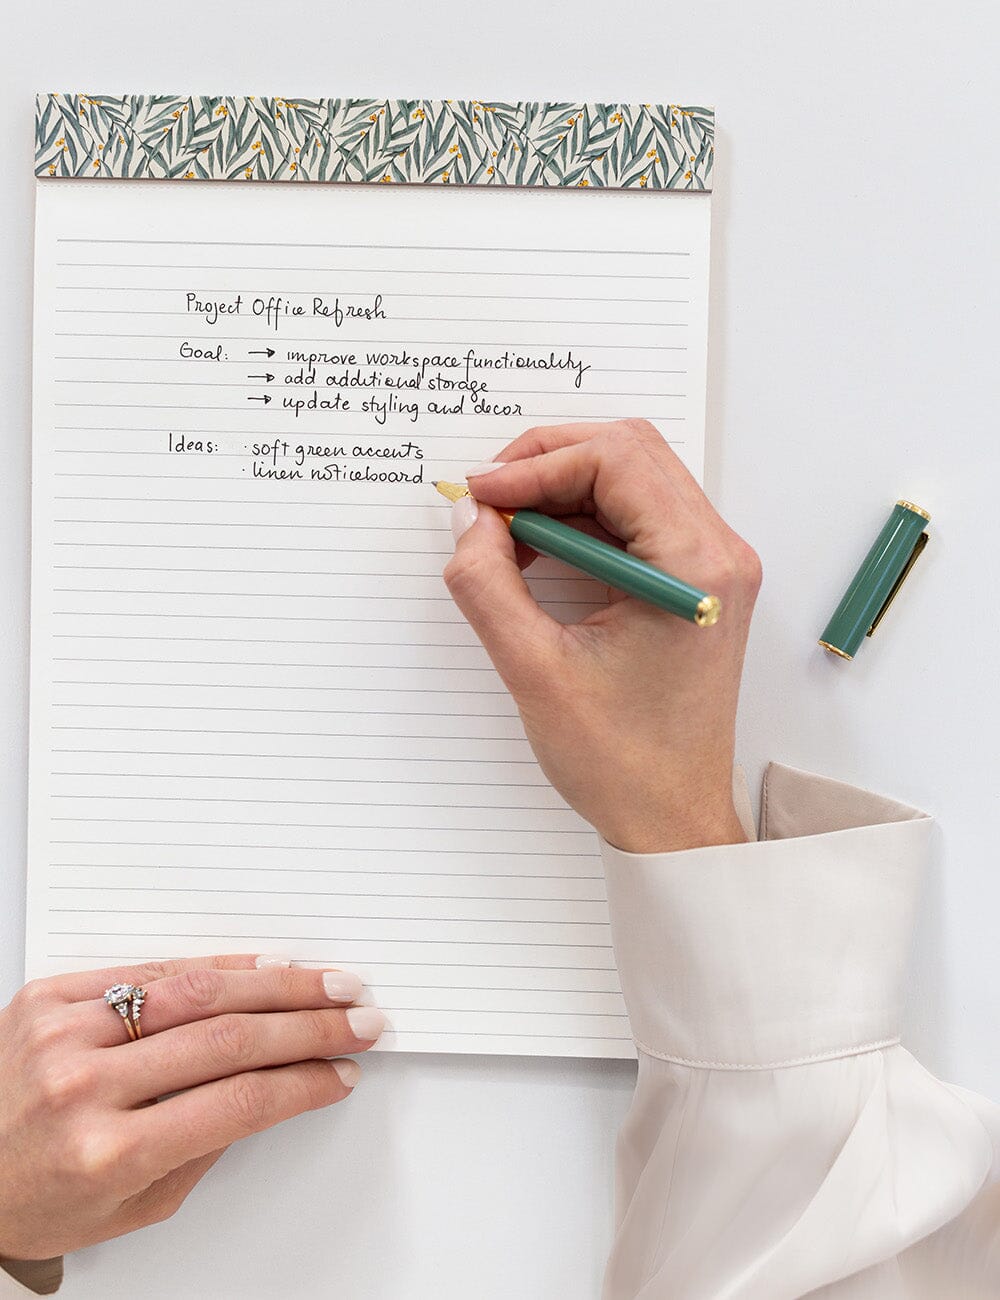 Project Office Refresh
Goal: → improve workspace functionality
→ add additional storage
→ update styling and decor
Ideas: · soft green accents
· linen noticeboard